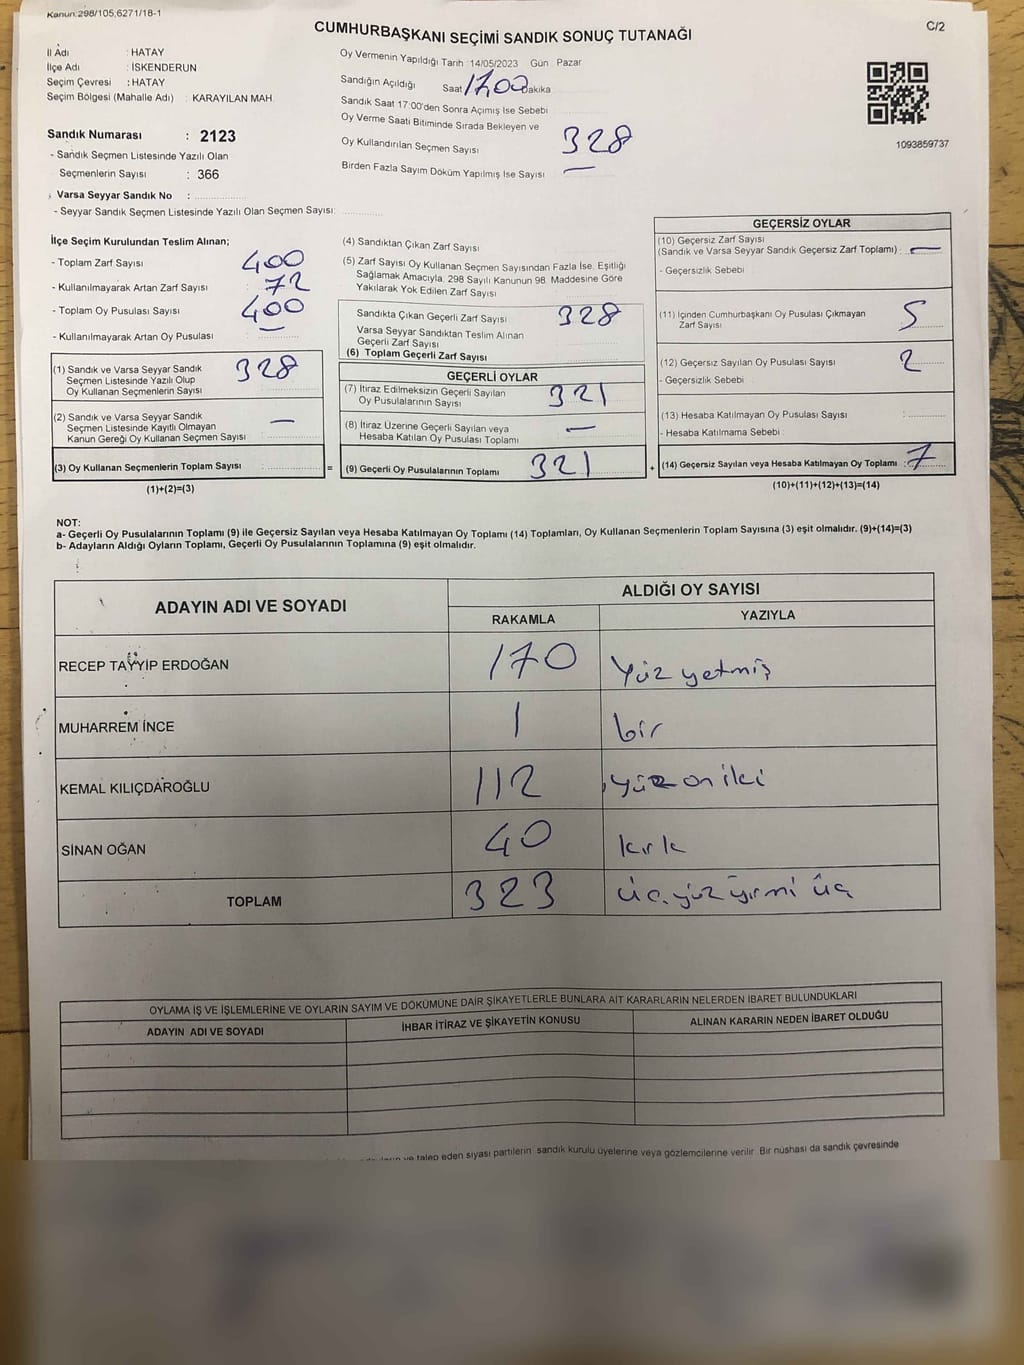 Kanun:298/105,6271/18-1
CUMHURBAŞKANI SEÇİMİ SANDIK SONUÇ TUTANAĞI
C/2
İl Adı : HATAY
İlçe Adı : İSKENDERUN
Seçim Çevresi : HATAY
Seçim Bölgesi (Mahalle Adı) : KARAYILAN MAH.
Sandık Numarası : 2123
- Sandık Seçmen Listesinde Yazılı Olan
Seçmenlerin Sayısı : 366
Varsa Seyyar Sandık No :
- Seyyar Sandık Seçmen Listesinde Yazılı Olan Seçmen Sayısı:
Oy Vermenin Yapıldığı Tarih :14/05/2023 Gün Pazar
Sandığın Açıldığı Saat 17,00 Dakika
Sandık Saat 17:00'den Sonra Açımış İse Sebebi
Oy Verme Saati Bitiminde Sırada Bekleyen ve
Oy Kullandırılan Seçmen Sayısı 328
Birden Fazla Sayım Döküm Yapılmış İse Sayısı —
1093859737
İlçe Seçim Kurulundan Teslim Alınan;
- Toplam Zarf Sayısı 400
- Kullanılmayarak Artan Zarf Sayısı : 72
- Toplam Oy Pusulası Sayısı 400
- Kullanılmayarak Artan Oy Pusulası —
(1) Sandık ve Varsa Seyyar Sandık
Seçmen Listesinde Yazılı Olup
Oy Kullanan Seçmenlerin Sayısı 328
(2) Sandık ve Varsa Seyyar Sandık
Seçmen Listesinde Kayıtlı Olmayan
Kanun Gereği Oy Kullanan Seçmen Sayısı —
(3) Oy Kullanan Seçmenlerin Toplam Sayısı =
(1)+(2)=(3)
(4) Sandıktan Çıkan Zarf Sayısı
(5) Zarf Sayısı Oy Kullanan Seçmen Sayısından Fazla İse, Eşitliği
Sağlamak Amacıyla, 298 Sayılı Kanunun 98. Maddesine Göre
Yakılarak Yok Edilen Zarf Sayısı
Sandıkta Çıkan Geçerli Zarf Sayısı 328
Varsa Seyyar Sandıktan Teslim Alınan
Geçerli Zarf Sayısı
(6) Toplam Geçerli Zarf Sayısı
GEÇERLİ OYLAR
(7) İtiraz Edilmeksizin Geçerli Sayılan
Oy Pusulalarının Sayısı 321
(8) İtiraz Üzerine Geçerli Sayılan veya
Hesaba Katılan Oy Pusulası Toplamı —
(9) Geçerli Oy Pusulalarının Toplamı 321 +
GEÇERSİZ OYLAR
(10) Geçersiz Zarf Sayısı
(Sandık ve Varsa Seyyar Sandık Geçersiz Zarf Toplamı) : —
- Geçersizlik Sebebi
(11) İçinden Cumhurbaşkanı Oy Pusulası Çıkmayan
Zarf Sayısı 5
(12) Geçersiz Sayılan Oy Pusulası Sayısı 2
- Geçersizlik Sebebi
(13) Hesaba Katılmayan Oy Pusulası Sayısı :
- Hesaba Katılmama Sebebi
(14) Geçersiz Sayılan veya Hesaba Katılmayan Oy Toplamı : 7
(10)+(11)+(12)+(13)=(14)
NOT:
a- Geçerli Oy Pusulalarının Toplamı (9) ile Geçersiz Sayılan veya Hesaba Katılmayan Oy Toplamı (14) Toplamları, Oy Kullanan Seçmenlerin Toplam Sayısına (3) eşit olmalıdır. (9)+(14)=(3)
b- Adayların Aldığı Oyların Toplamı, Geçerli Oy Pusulalarının Toplamına (9) eşit olmalıdır.
ADAYIN ADI VE SOYADI
ALDIĞI OY SAYISI
RAKAMLA YAZIYLA
RECEP TAYYİP ERDOĞAN 170 Yüz yetmiş
MUHARREM İNCE 1 bir
KEMAL KILIÇDAROĞLU 112 yüz on iki
SİNAN OĞAN 40 kırk
TOPLAM 323 üç yüz yirmi üç
OYLAMA İŞ VE İŞLEMLERİNE VE OYLARIN SAYIM VE DÖKÜMÜNE DAİR ŞİKAYETLERLE BUNLARA AİT KARARLARIN NELERDEN İBARET BULUNDUKLARI
ADAYIN ADI VE SOYADI İHBAR İTİRAZ VE ŞİKAYETİN KONUSU ALINAN KARARIN NEDEN İBARET OLDUĞU
ve talep eden siyasi partilerin sandık kurulu üyelerine veya gözlemcilerine verilir. Bir nüshası da sandık çevresinde